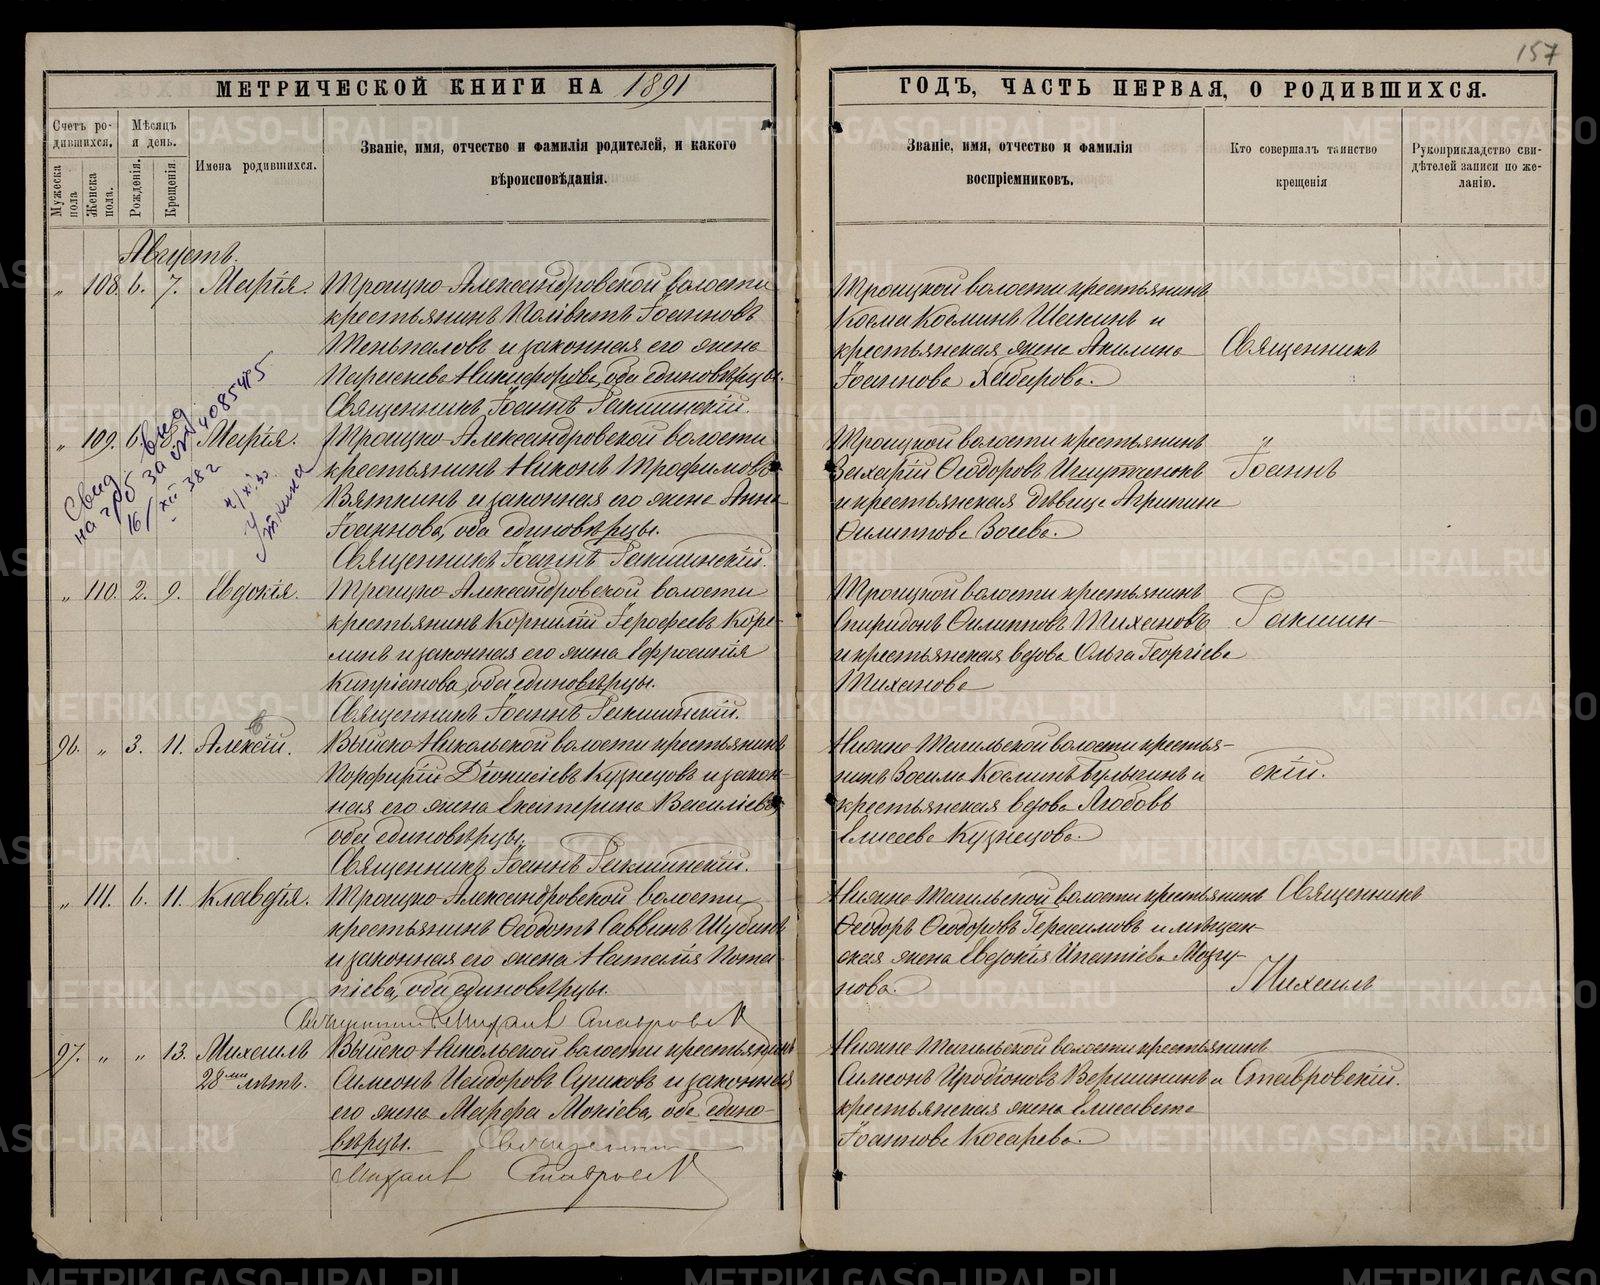 157
МЕТРИЧЕСКОЙ КНИГИ НА 1891
ГОДЪ, ЧАСТЬ ПЕРВАЯ, О РОДИВШИХСЯ.
Счетъ ро-
дившихся.
Мужеска
пола
Женска
пола.
Мѣсяцъ
и день.
Рожденія.
Крещенія
Имена родившихся.
Званіе, имя, отчество и фамилія родителей, и какого
вѣроисповѣданія.
Званіе, имя, отчество и фамилія
воспріемниковъ.
Кто совершалъ таинство
крещенія
Рукоприкладство сви-
дѣтелей записи по же-
ланію.
Августъ.
„ 108. 6. 7. Марія.
Троицко-Александровской волости
крестьянинъ Іоанновъ
и законная его жена
Никифорова, оба единовѣрцы.
Священникъ Іоаннъ Ракшинскій.
Троицкой волости крестьянинъ
Косма Косминъ и
крестьянская жена Акилина
Іоаннова Хабарова.
Священникъ
„ 109. 6. Марія.
Троицко-Александровской волости
крестьянинъ Никонъ Трофимовъ
Вяткинъ и законная его жена Анна
Іоаннова, оба единовѣрцы.
Священникъ Іоаннъ Ракшинскій.
Свид.
на
16/XII 38 г
Троицкой волости крестьянинъ
Захарій Ѳеодоровъ
и крестьянская дѣвица Агрипина
Филиппова Зоева.
„
Іоаннъ
„ 110. 2. 9. Евдокія.
Троицко-Александровской волости
крестьянинъ Корнилій Іерофеевъ Коре-
линъ и законная его жена Евфросинія
Кипріанова, оба единовѣрцы.
Священникъ Іоаннъ Ракшинскій.
Троицкой волости крестьянинъ
Спиридонъ Филипповъ Тихановъ
и крестьянская вдова Ольга Георгіева
Тиханова
Ракшин-
96. „ 3. 11. Алексій.
Выйско-Никольской волости крестьянинъ
Порфирій Діонисіевъ Кузнецовъ и закон-
ная его жена Екатерина Василіева,
оба единовѣрцы.
Священникъ Іоаннъ Ракшинскій.
Нижне-Тагильской волости крестья-
нинъ Зосима Косминъ Булыгинъ и
крестьянская вдова Любовь
Елисеева Кузнецова.
скій.
„ 111. 6. 11. Клавдія.
Троицко-Александровской волости
крестьянинъ Ѳеодотъ Саввинъ Шубинъ
и законная его жена Наталія Пота-
піева, оба единовѣрцы.
Священникъ Михаилъ Ставровскій
Нижне-Тагильской волости крестьянинъ
Ѳеодоръ Ѳеодоровъ Герасимовъ и мѣщан-
ская жена Евдокія Ипатіева Мозгу-
нова.
Священникъ
Михаилъ
97. „ „ 13. Михаилъ
28ми лѣтъ.
Выйско-Никольской волости крестьянинъ
Симеонъ Исидоровъ Сушковъ и законная
его жена Марфа Мокіева, оба едино-
вѣрцы. Священникъ
Михаилъ Ставровскій
Нижне-Тагильской волости крестьянинъ
Симеонъ Иродіоновъ Вершининъ и
крестьянская жена Елисавета
Іоаннова Косарева.
Ставровскій.
METRIKI.GASO-URAL.RU